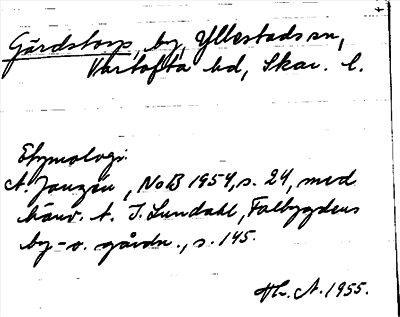 Gårdstorp, by, Yllestads sn,
Vartofta hd, Skar. l.
Etymologi:
A. Janzén, NoB 1954, s. 24, med
hänv. t. I. Lundahl, Falbygdens
by- o. gårdn., s. 145.
Hr. A. 1955.